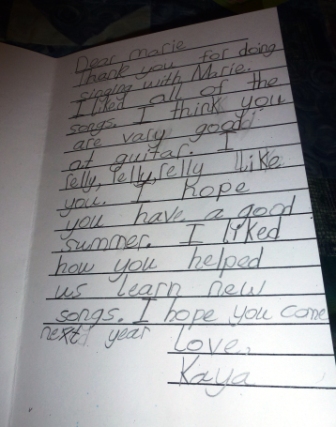 Dear Marie
Thank you for doing
singing with Marie.
I liked all of the
songs. I think you
are vary good
at guitar. I
relly, relly, relly like
you. I hope
you have a good
summer. I liked
how you helped
us learn new
songs. I hope you come
next year
Love,
Kaya